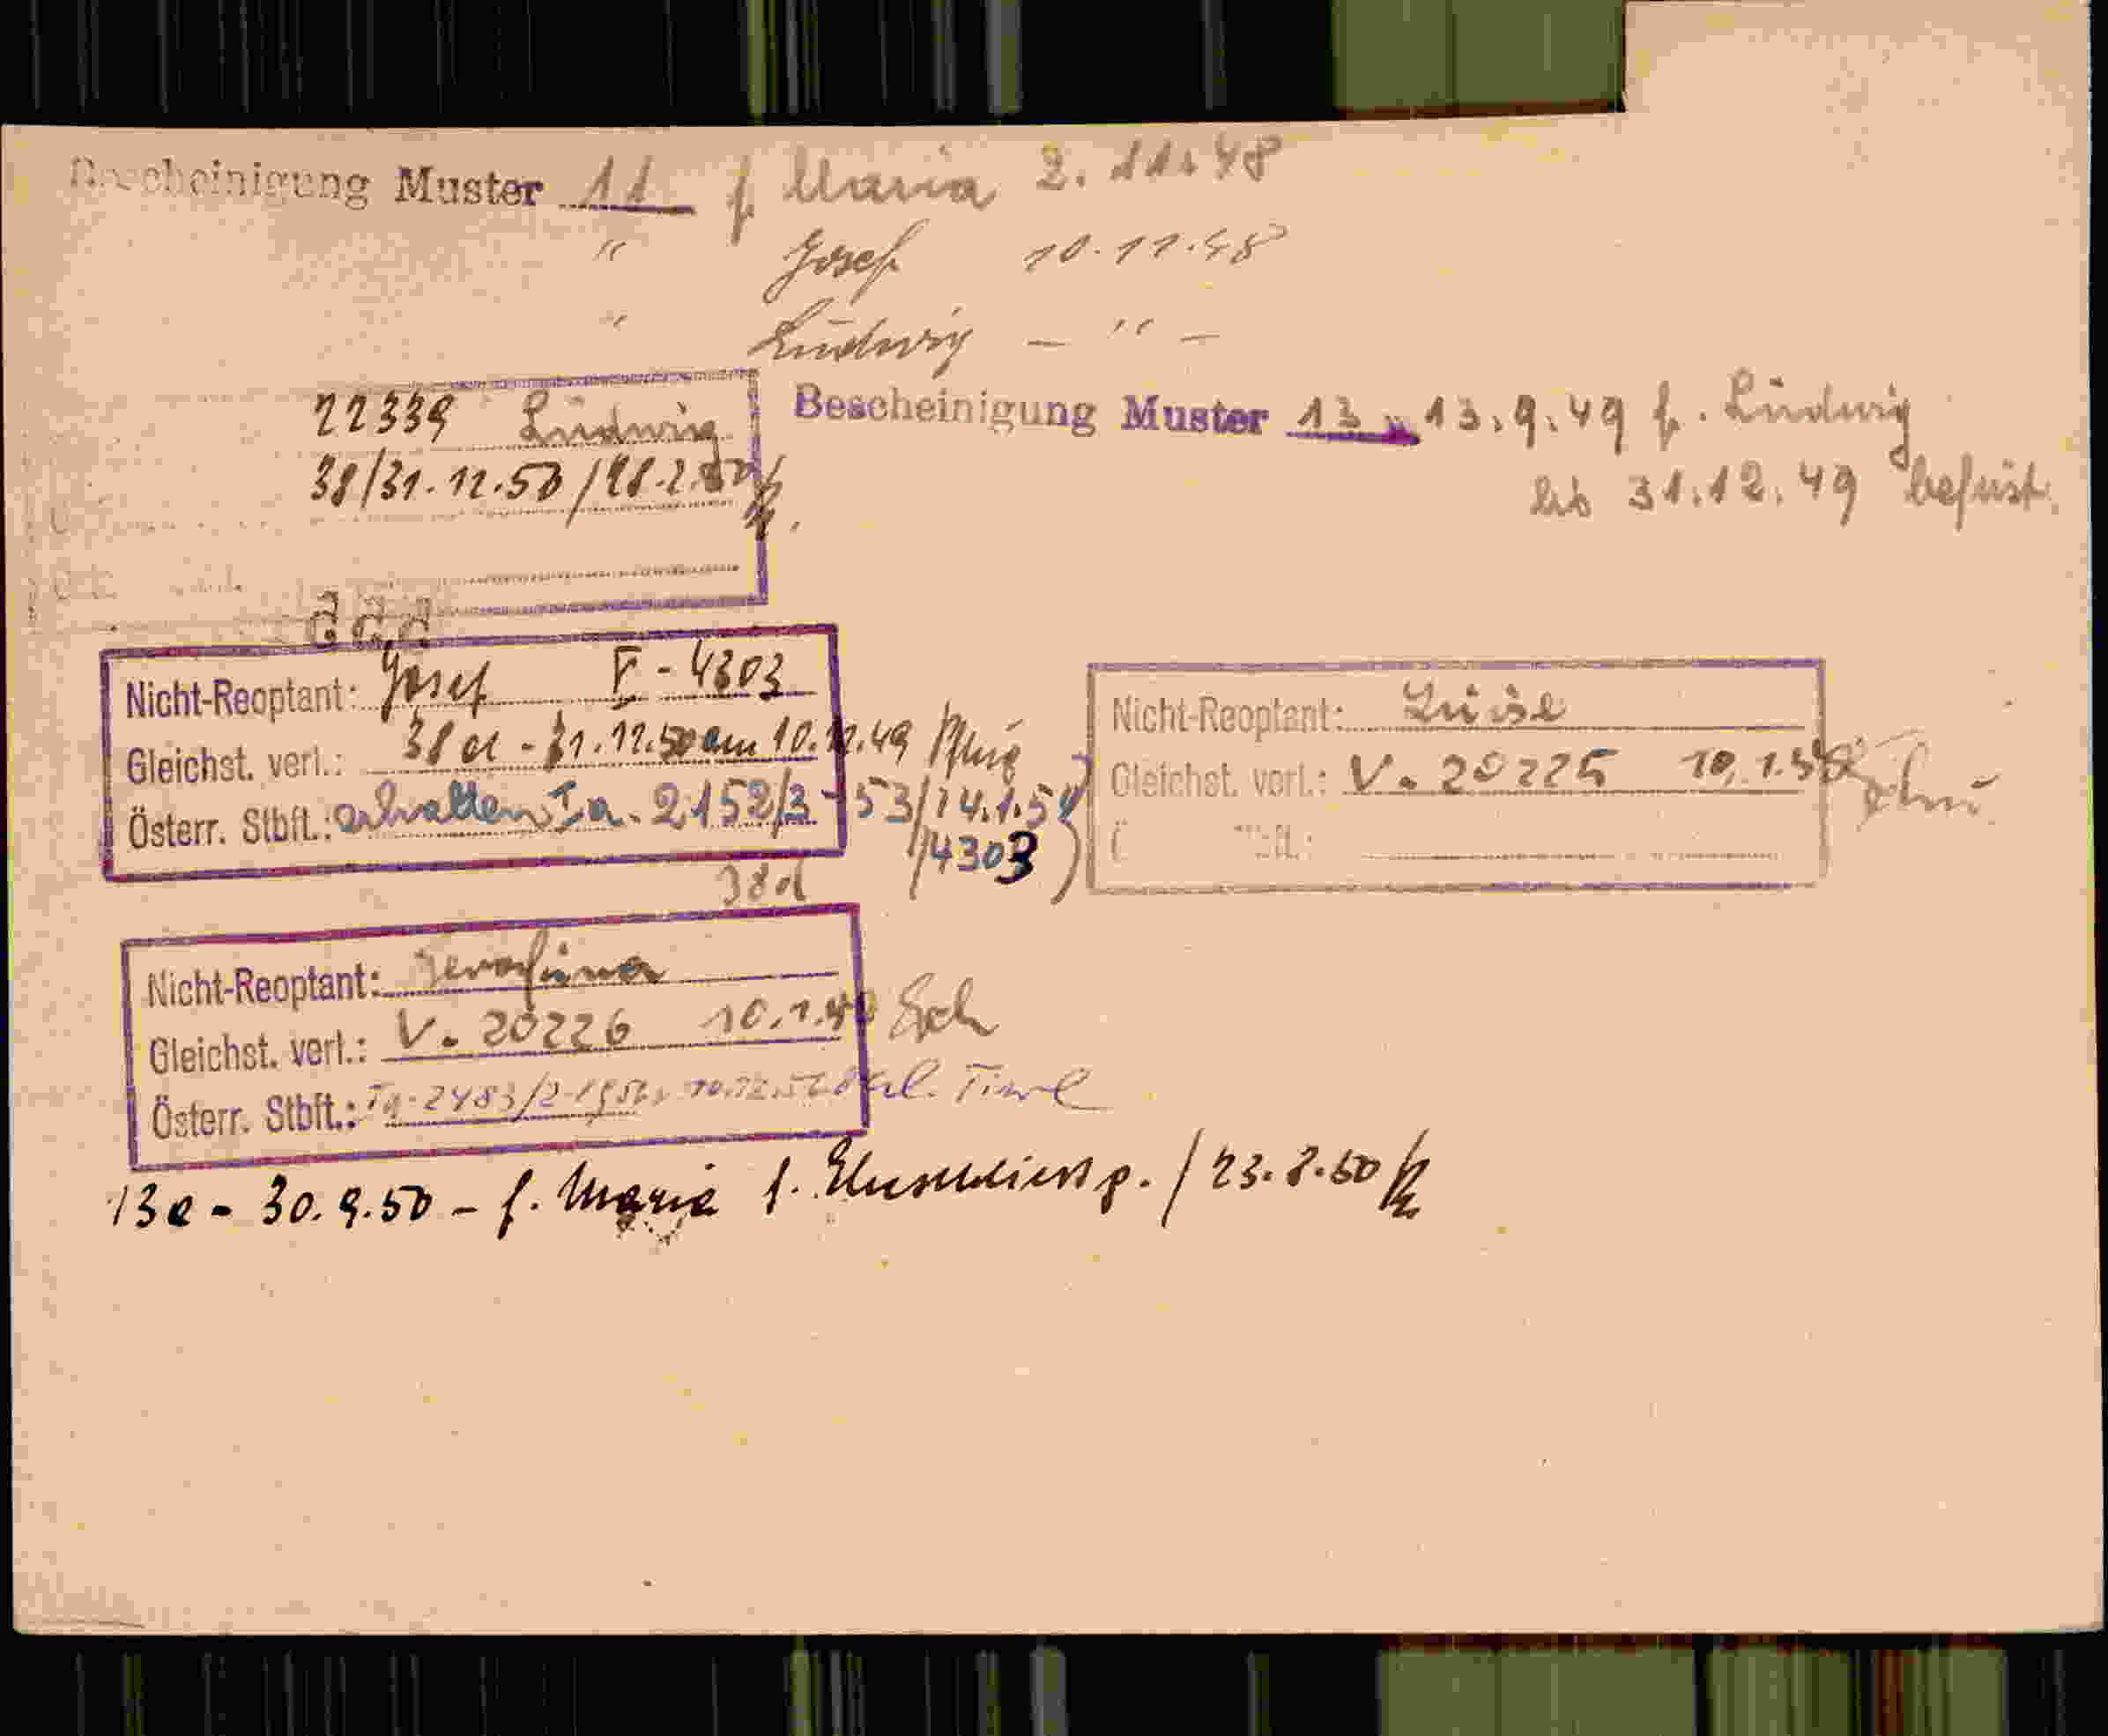 Bescheinigung Muster 11 f Maria 2.11.48
" Josef 10.11.48
" Ludwig - " -
22339 Ludwig
Bescheinigung Muster 13 13.9.49 f. Ludwig
bis 31.12.49 befrist.
38/31.12.50
Nicht-Reoptant: Josef F-4303
Gleichst. verl.: 38 d - 31.12.50 am 10.11.49
Österr. Stbft.: erhalten Ia-2152/3-53/14.1.54
/4303)
38d
Nicht-Reoptant: Luise
Gleichst. verl.: V. 20225 10.1.50
Nicht-Reoptant: Serafina
Gleichst. verl.: V. 20226 10.1.50
Österr. Stbft.: Ia-2483/2-
13e - 30.9.50 - f. Maria f. / 23.8.50